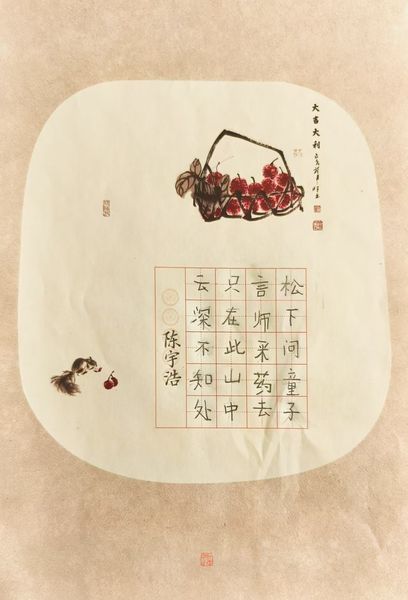 大吉大利
松下问童子
言师采药去
只在此山中
云深不知处
陈宇浩